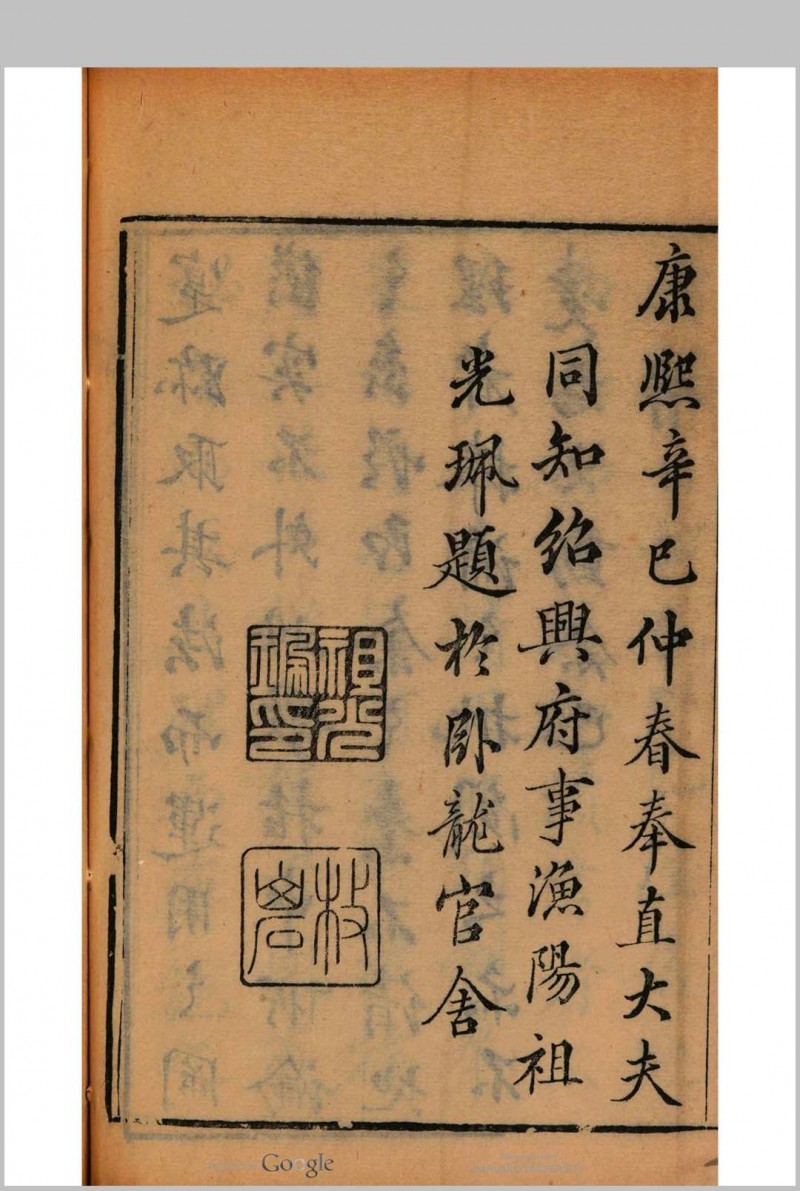 康熙辛巳仲春奉直大夫
同知紹興府事漁陽祖
光珮題於臥龍官舍
祖光珮印
Google